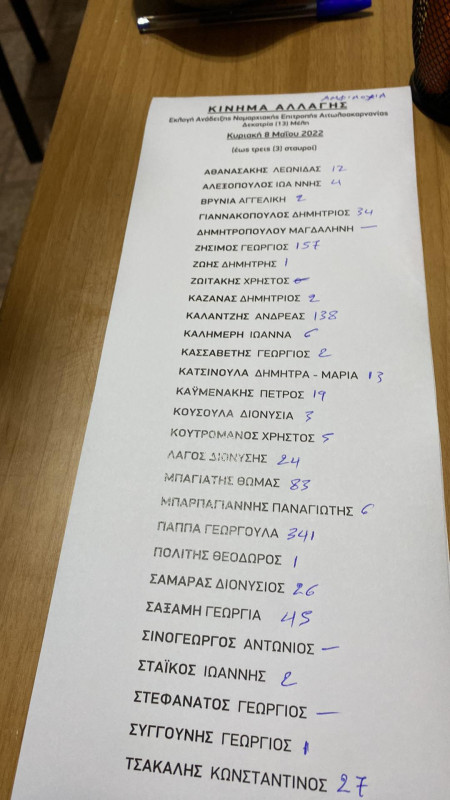 ΑΜΦΙΛΟΧΙΑ
ΚΙΝΗΜΑ ΑΛΛΑΓΗΣ
Εκλογή Ανάδειξης Νομαρχιακής Επιτροπής Αιτωλοακαρνανίας
Δεκατρία (13) Μέλη
Κυριακή 8 Μαΐου 2022
(έως τρεις (3) σταυροί)
ΑΘΑΝΑΣΑΚΗΣ ΛΕΩΝΙΔΑΣ 12
ΑΛΕΞΟΠΟΥΛΟΣ ΙΩΑΝΝΗΣ 4
ΒΡΥΝΙΑ ΑΓΓΕΛΙΚΗ 2
ΓΙΑΝΝΑΚΟΠΟΥΛΟΣ ΔΗΜΗΤΡΙΟΣ 34
ΔΗΜΗΤΡΟΠΟΥΛΟΥ ΜΑΓΔΑΛΗΝΗ —
ΖΗΣΙΜΟΣ ΓΕΩΡΓΙΟΣ 157
ΖΩΗΣ ΔΗΜΗΤΡΗΣ 1
ΖΩΙΤΑΚΗΣ ΧΡΗΣΤΟΣ
ΚΑΖΑΝΑΣ ΔΗΜΗΤΡΙΟΣ 2
ΚΑΛΑΝΤΖΗΣ ΑΝΔΡΕΑΣ 138
ΚΑΛΗΜΕΡΗ ΙΩΑΝΝΑ 6
ΚΑΣΣΑΒΕΤΗΣ ΓΕΩΡΓΙΟΣ 2
ΚΑΤΣΙΝΟΥΛΑ ΔΗΜΗΤΡΑ - ΜΑΡΙΑ 13
ΚΑΫΜΕΝΑΚΗΣ ΠΕΤΡΟΣ 19
ΚΟΥΣΟΥΛΑ ΔΙΟΝΥΣΙΑ 3
ΚΟΥΤΡΟΜΑΝΟΣ ΧΡΗΣΤΟΣ 5
ΛΑΓΟΣ ΔΙΟΝΥΣΗΣ 24
ΜΠΑΓΙΑΤΗΣ ΘΩΜΑΣ 83
ΜΠΑΡΠΑΓΙΑΝΝΗΣ ΠΑΝΑΓΙΩΤΗΣ 6
ΠΑΠΠΑ ΓΕΩΡΓΟΥΛΑ 341
ΠΟΛΙΤΗΣ ΘΕΟΔΩΡΟΣ 1
ΣΑΜΑΡΑΣ ΔΙΟΝΥΣΙΟΣ 26
ΣΑΞΑΜΗ ΓΕΩΡΓΙΑ 45
ΣΙΝΟΓΕΩΡΓΟΣ ΑΝΤΩΝΙΟΣ —
ΣΤΑΪΚΟΣ ΙΩΑΝΝΗΣ 2
ΣΤΕΦΑΝΑΤΟΣ ΓΕΩΡΓΙΟΣ —
ΣΥΓΓΟΥΝΗΣ ΓΕΩΡΓΙΟΣ 1
ΤΣΑΚΑΛΗΣ ΚΩΝΣΤΑΝΤΙΝΟΣ 27